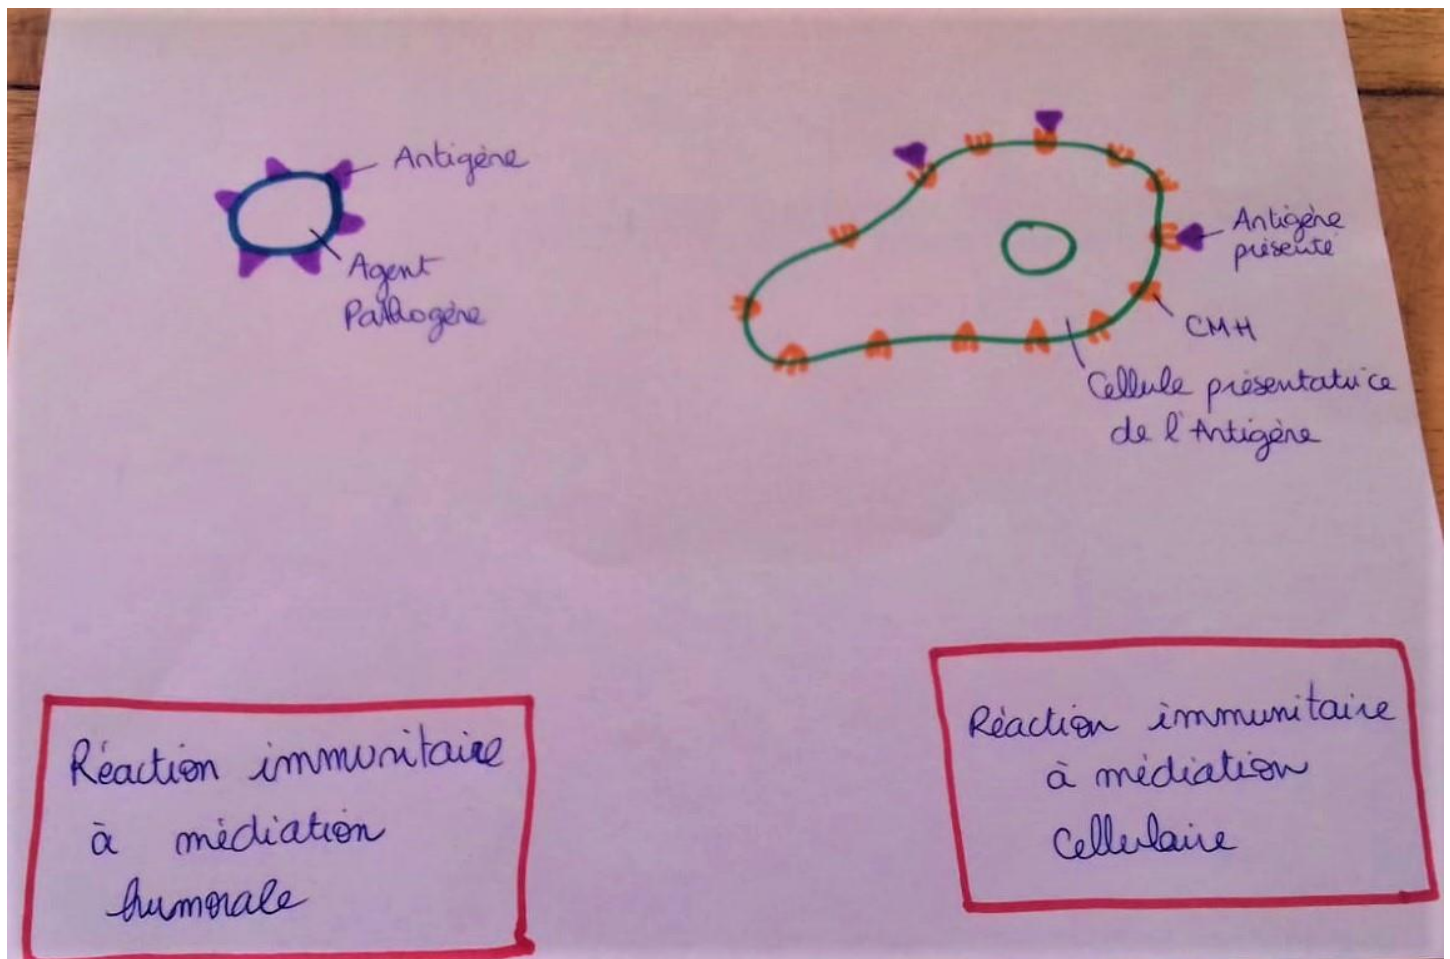 Antigène
Agent
Pathogène
Antigène
présenté
CMH
Cellule présentatrice
de l'Antigène
Réaction immunitaire
à médiation
humorale
Réaction immunitaire
à médiation
cellulaire